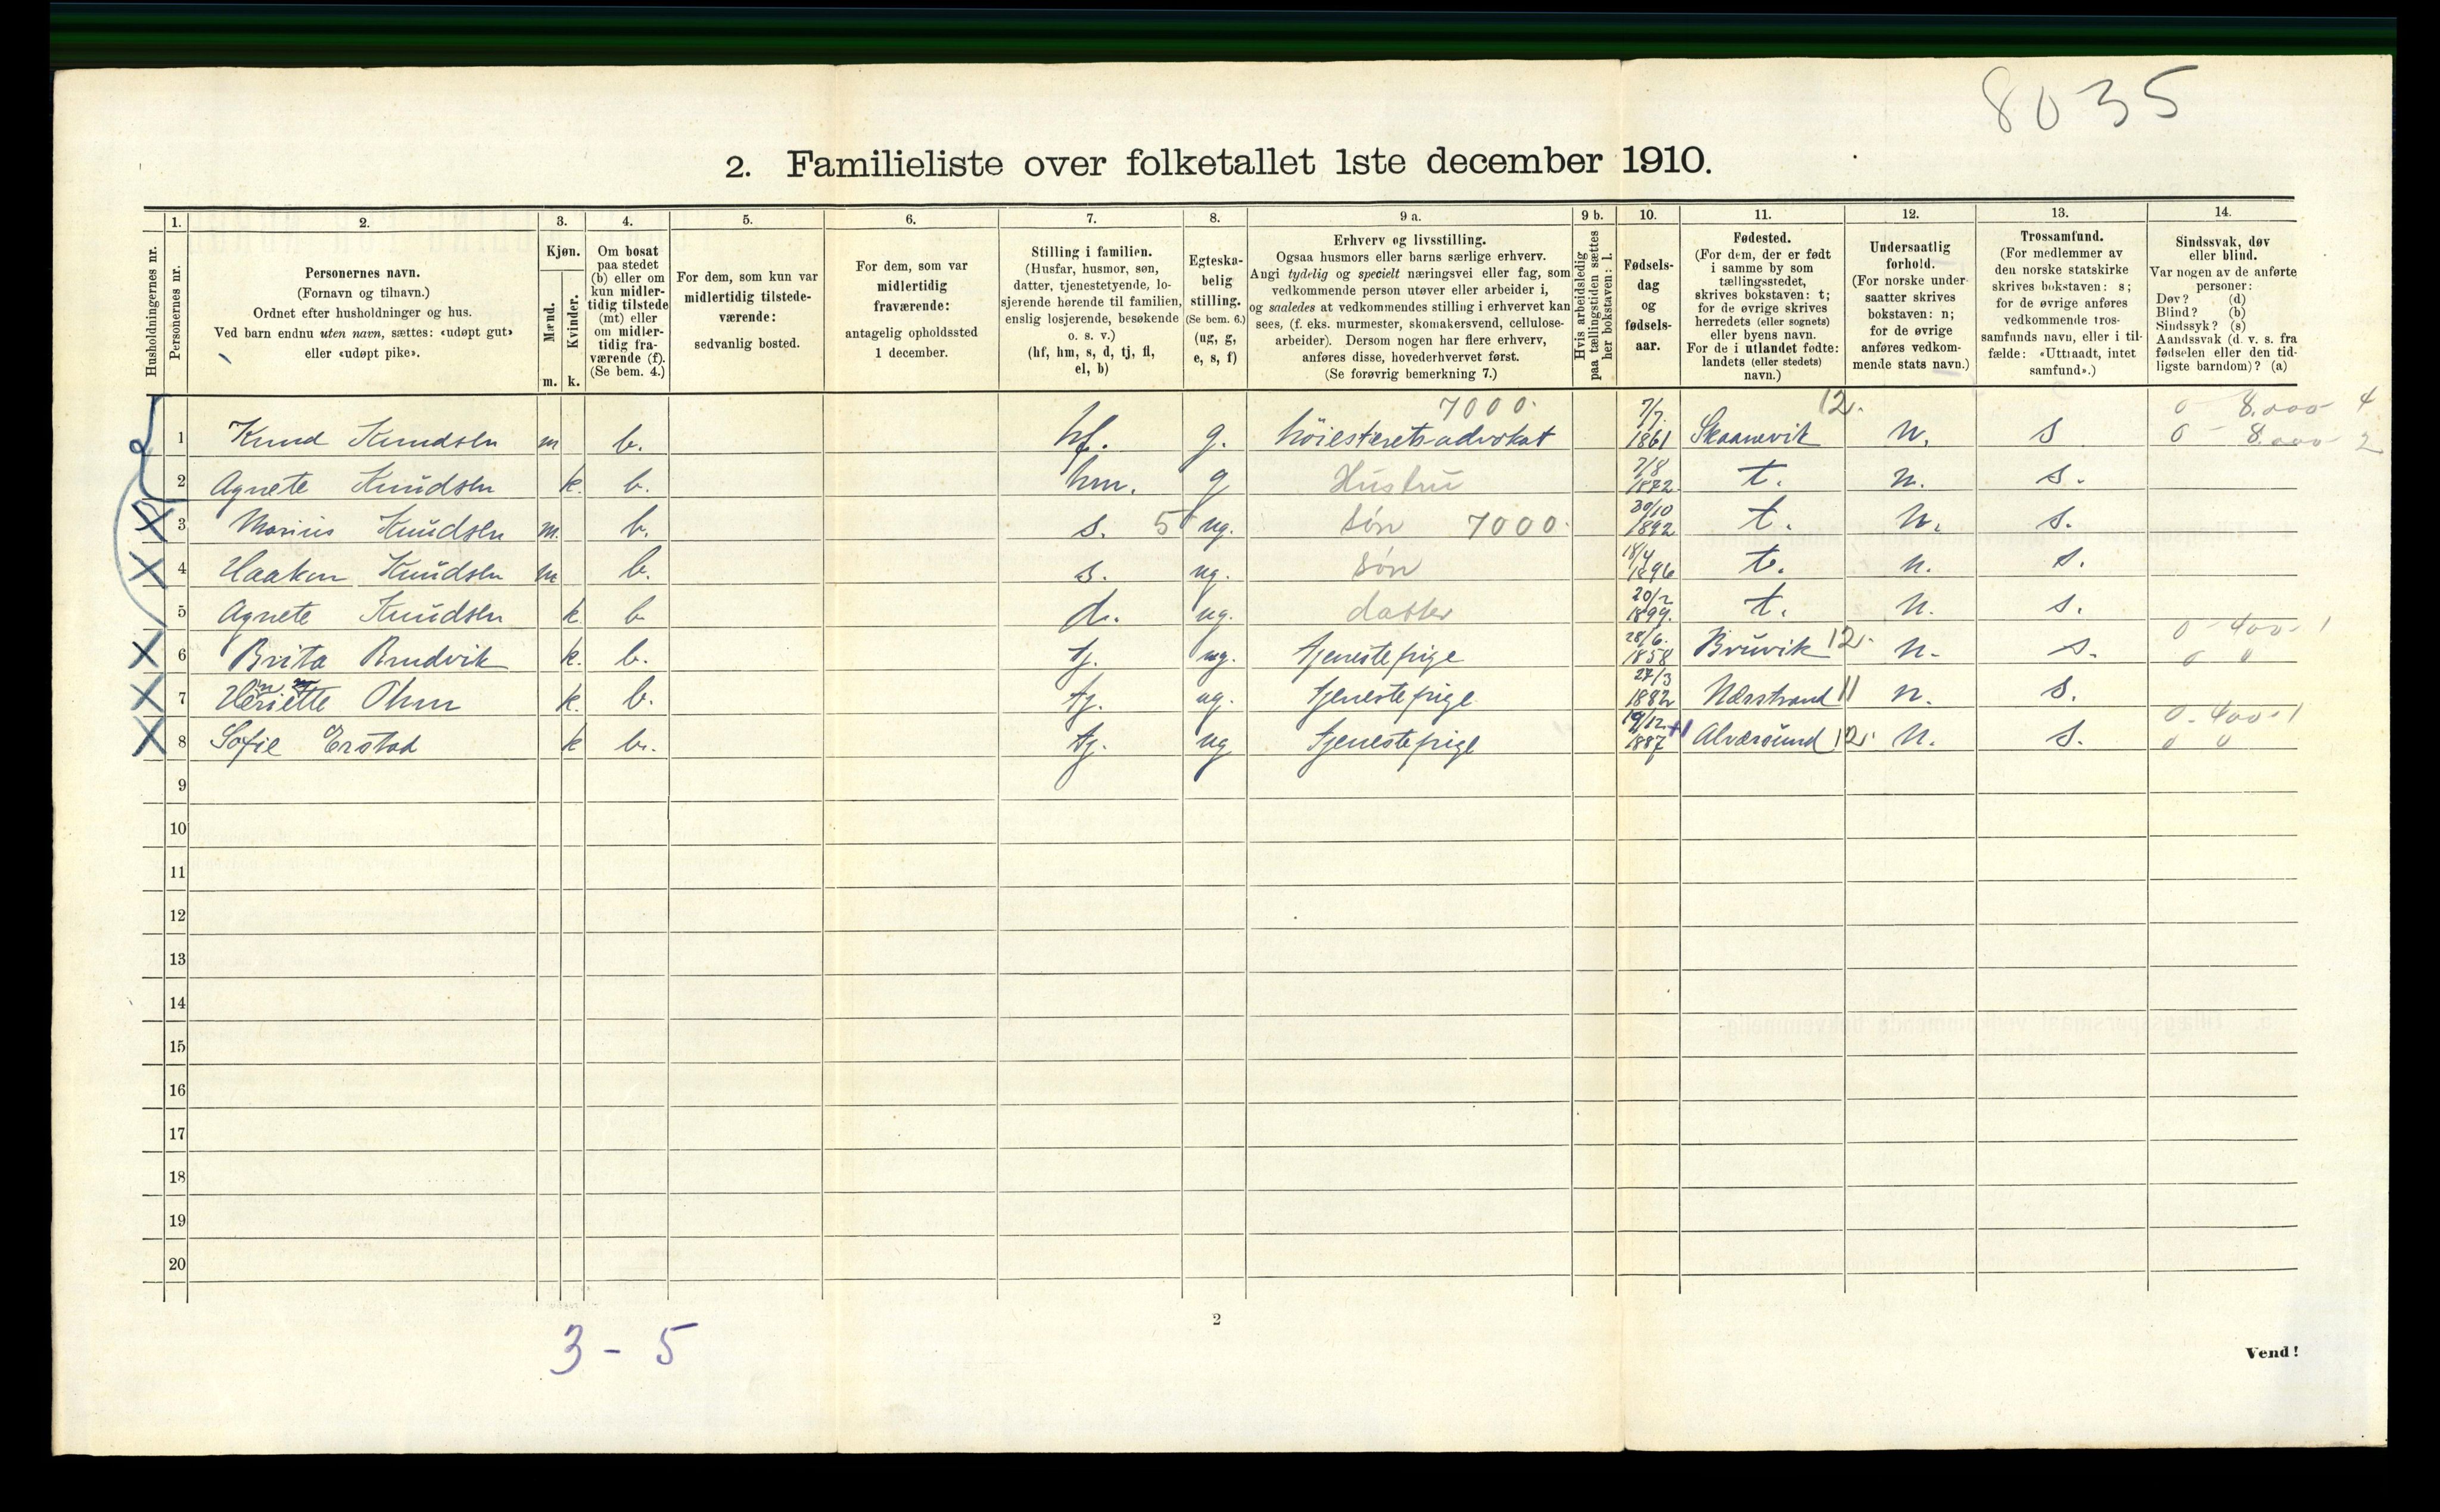 8035
2. Familieliste over folketallet 1ste december 1910.
Husholdningernes nr.
1.
Personernes nr.
2.
Personernes navn.
(Fornavn og tilnavn.)
Ordnet efter husholdninger og hus.
Ved barn endnu uten navn, sættes: «udøpt gut»
eller «udøpt pike».
3.
Kjøn.
Mænd.
Kvinder.
m. k.
4.
Om bosat
paa stedet
(b) eller om
kun midler-
tidig tilstede
(mt) eller
om midler-
tidig fra-
værende (f).
(Se bem. 4.)
5.
For dem, som kun var
midlertidig tilstede-
værende:
sedvanlig bosted.
6.
For dem, som var
midlertidig
fraværende:
antagelig opholdssted
1 december.
7.
Stilling i familien.
(Husfar, husmor, søn,
datter, tjenestetyende, lo-
sjerende hørende til familien,
enslig losjerende, besøkende
o. s. v.)
(hf, hm, s, d, tj, fl,
el, b)
8.
Egteska-
belig
stilling.
(Se bem. 6.)
(ug, g,
e, s, f)
9 a.
Erhverv og livsstilling.
Ogsaa husmors eller barns særlige erhverv.
Angi tydelig og specielt næringsvei eller fag, som
vedkommende person utøver eller arbeider i,
og saaledes at vedkommendes stilling i erhvervet kan
sees, (f. eks. murmester, skomakersvend, cellulose-
arbeider). Dersom nogen har flere erhverv,
anføres disse, hovederhvervet først.
(Se forøvrig bemerkning 7.)
9 b.
Hvis arbeidsledig
paa tællingstiden sættes
her bokstaven: l.
10.
Fødsels-
dag
og
fødsels-
aar.
11.
Fødested.
(For dem, der er født
i samme by som
tællingsstedet,
skrives bokstaven: t;
for de øvrige skrives
herredets (eller sognets)
eller byens navn.
For de i utlandet fødte:
landets (eller stedets)
navn.)
12.
Undersaatlig
forhold.
(For norske under-
saatter skrives
bokstaven: n;
for de øvrige
anføres vedkom-
mende stats navn.)
13.
Trossamfund.
(For medlemmer av
den norske statskirke
skrives bokstaven: s;
for de øvrige anføres
vedkommende tros-
samfunds navn, eller i til-
fælde: «Uttraadt, intet
samfund».)
14.
Sindssvak, døv
eller blind.
Var nogen av de anførte
personer:
Døv? (d)
Blind? (b)
Sindssyk? (s)
Aandssvak (d. v. s. fra
fødselen eller den tid-
ligste barndom)? (a)
7000. 7/7. 12. 0 8.000 4
1 Knud Knudsen m b. hf. g. høiesteretsadvokat 1861 Skaanevik n. s 0 - 8.000 2
2 Agnete Knudsen k. b. hm. g Hustru 7/8 1872 t. n. s.
3 Marius Knudsen m. b. s. 5 ug. søn 7000. 30/10 1892 t. n. s.
4 Haakon Knudsen m b. s. ug. søn 18/4 1896 t. n. s.
5 Agnete Knudsen k. b d. ug. datter 20/2 1899. t. n. s.
6 Brita Brudvik k. b. tj. ug. tjenestepige 28/6. 1858 Bruvik 12. n. s. 0 - 400 - 1 0 0
7 Henriette Ohm k. b. tj. ug. tjenestepige 27/3 1882 Nærstrand 11 n. s.
8 Sofie Erstad k b. tj. ug tjenestepige 19/12 1887 Alversund 12. n. s. 0 - 400 - 1 0 0
9
10
11
12
13
14
15
16
17
18
19
20
3 - 5
2
Vend!